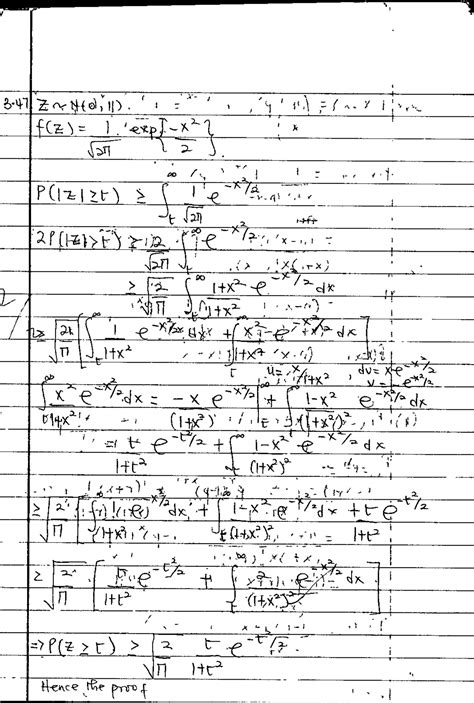 3.47 Z ~ N(0,1).
f(z) = 1/√2π exp{-x²/2}
P(|Z| ≥ t) ≥ ∫_t^∞ 1/√2π e^{-x²/2}
2P(|Z| > t) ≥ 2/√2π ∫_t^∞ e^{-x²/2}
≥ √(2/π) ∫_t^∞ (1+x²)/(1+x²) e^{-x²/2} dx
≥ √(2/π) [∫_t^∞ 1/(1+x²) e^{-x²/2} dx + ∫_t^∞ x²/(1+x²) e^{-x²/2} dx]
u = x/(1+x²) dv = x e^{-x²/2}
∫_t^∞ x²/(1+x²) e^{-x²/2} dx = -x/(1+x²) e^{-x²/2} |_t^∞ + ∫_t^∞ (1-x²)/(1+x²)² e^{-x²/2} dx
= t/(1+t²) e^{-t²/2} + ∫_t^∞ (1-x²)/(1+x²)² e^{-x²/2} dx
≥ √(2/π) [∫ 1/(1+x²) e^{-x²/2} dx + ∫_t^∞ (1-x²)/(1+x²)² e^{-x²/2} dx + t/(1+t²) e^{-t²/2}
≥ √(2/π) [ /(1+t²) e^{-t²/2} + ∫_t^∞ /(1+x²)² e^{-x²/2} dx]
⇒ P(Z ≥ t) ≥ √(2/π) t/(1+t²) e^{-t²/2}.
Hence the proof